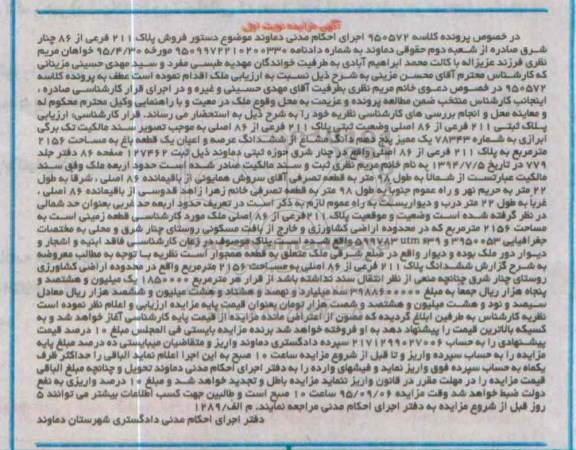 آگهی مزایده نوبت اول
در خصوص پرونده کلاسه ۹۵۰۵۷۲ اجرای احکام مدنی دماوند موضوع دستور فروش پلاک ۲۱۱ فرعی از ۸۶ چنار
شرق صادره از شعبه دوم حقوقی دماوند به شماره دادنامه ۹۵۰۹۹۷۲۲۱۰۲۰۰۳۳۰ مورخه ۹۵/۴/۳۰ خواهان مریم
نظری فرزند عزیزاله با کالت محمد ابراهیم آبادی به طرفیت خواندگان مهدیه طبسی مفرد و سید مهدی حسینی مزینانی
که کارشناس محترم آقای محسن مزینی به شرح ذیل نسبت به ارزیابی ملک اقدام نموده است عطف به پرونده کلاسه
۹۵۰۵۷۲ در خصوص دعوی خانم مریم نظری بطرفیت آقای مهدی حسینی و غیره و در اجرای قرار کارشناسی صادره ،
اینجانب کارشناس منتخب ضمن مطالعه پرونده و عزیمت به محل وقوع ملک در معیت و با راهنمایی وکیل محترم محکوم له
و معاینه محل و انجام بررسی های کارشناسی نظریه خود را به شرح ذیل به استحضار می رساند. قرار کارشناسی، ارزیابی
پلاک ثبتی ۲۱۱ فرعی از ۸۶ اصلی وضعیت ثبتی پلاک ۲۱۱ فرعی از ۸۶ اصلی به موجب تصویر سند مالکیت تک برگی
ابرازی به شماره ۷۸۳۴۳ یک ممیز پنج دهم دانگ مشاع از ششدانگ عرصه و اعیان یک قطعه باغ به مساحت ۲۱۵۶
مترمربع به پلاک ۲۱۱ فرعی از ۸۶ اصلی واقع در چنار شرق حوزه ثبتی دماوند ذیل ثبت ۲۷۴۶۲ صفحه ۸۶ دفتر جلد
۷۷۹ در تاریخ ۱۳۹۴/۷/۵ به نام خانم مریم نظری ثبت و سند مالکیت صادر شده است حدود اربعه ملک وفق سند
مالکیت عبارتست از شمالا به طول ۹۸ متر به قطعه تصرفی آقای سروش همایونی از باقیمانده ۸۶ اصلی ، شرقا به طول
۲۲ متر به حریم نهر و راه عموم جنوبا به طول ۹۸ متر به قطعه تصرفی خانم زهرا زاهد قدوسی از باقیمانده ۸۶ اصلی ،
غربا به طول ۲۲ متر درب و دیواریست به راه عموم لازم به ذکر است در تعریف حدود اربعه حد غربی بعنوان حد شمالی
در نظر گرفته شده است وضعیت و موقعیت پلاک ۲۱۱ فرعی از ۸۶ اصلی ملک مورد کارشناسی قطعه زمینی است به
مساحت ۲۱۵۶ مترمربع که در محدوده اراضی کشاورزی و خارج از بافت مسکونی روستای چنار شرق و محلی به مختصات
جغرافیایی ۳۹۵۰۰۵۳ و utm ۴۳۹ ۵۹۹۷۸۳ واقع شده است پلاک موصوف در زمان کارشناسی فاقد ابنیه و اشجار و
دیوار دور ملک بوده و دیوار واقع در ضلع شرقی ملک متعلق به قطعه همجوار است نظریه با توجه به مطالب معروضه
به شرح گزارش ششدانگ پلاک ۲۱۱ فرعی از ۸۶ اصلی به مساحت ۲۱۵۶ مترمربع واقع در محدوده اراضی کشاورزی
روستای چنار شرق چنانچه منعی از نظر انتقال سند نداشته باشد از قرار هر مترمربع ۱۸۵۰۰۰۰ یک میلیون و هشتصد و
پنجاه هزار ریال جمعا به مبلغ ۳۹۸۸۶۰۰۰۰۰ سه میلیارد و نهصد و هشتاد و هشت میلیون و ششصد هزار ریال معادل
سیصد و نود و هشت میلیون و هشتصد و شصت هزار تومان بعنوان قیمت پایه مزایده ارزیابی و اعلام نظر نموده است
نظریه کارشناس به طرفین ابلاغ گردیده که مصون از اعتراض مانده مزایده از قیمت پایه کارشناسی آغاز خواهد شد و به
کسیکه بالاترین قیمت را پیشنهاد دهد به او فروخته خواهد شد برنده مزایده بایستی فی المجلس مبلغ ۱۰ درصد قیمت
پیشنهادی را به حساب ۲۱۷۱۲۹۹۰۲۷۰۰۶ سپرده دادگستری دماوند واریز و متقاضیان میبایستی ده درصد مبلغ پایه
مزایده را به حساب سپرده واریز و تا قبل از شروع مزایده ساعت ۱۰ صبح به این اجرا اعلام نماید الباقی را حداکثر ظرف
یکماه به حساب سپرده فوق واریز نماید و فیشهای وارده را به دفتر اجرای احکام مدنی دماوند تحویل و چنانچه مبلغ الباقی
قیمت مزایده را در مهلت مقرر در قانون واریز ننماید مزایده باطل و تجدید خواهد شد و مبلغ ۱۰ درصد واریزی به نفع
دولت ضبط خواهد شد وقت مزایده ۹۵/۰۹/۰۶ ساعت ۱۰ صبح است و طالبین جهت کسب اطلاعات بیشتر می توانند ۵
روز قبل از شروع مزایده به دفتر اجرای احکام مدنی مراجعه نمایند. م الف/۱۲۸۹
دفتر اجرای احکام مدنی دادگستری شهرستان دماوند